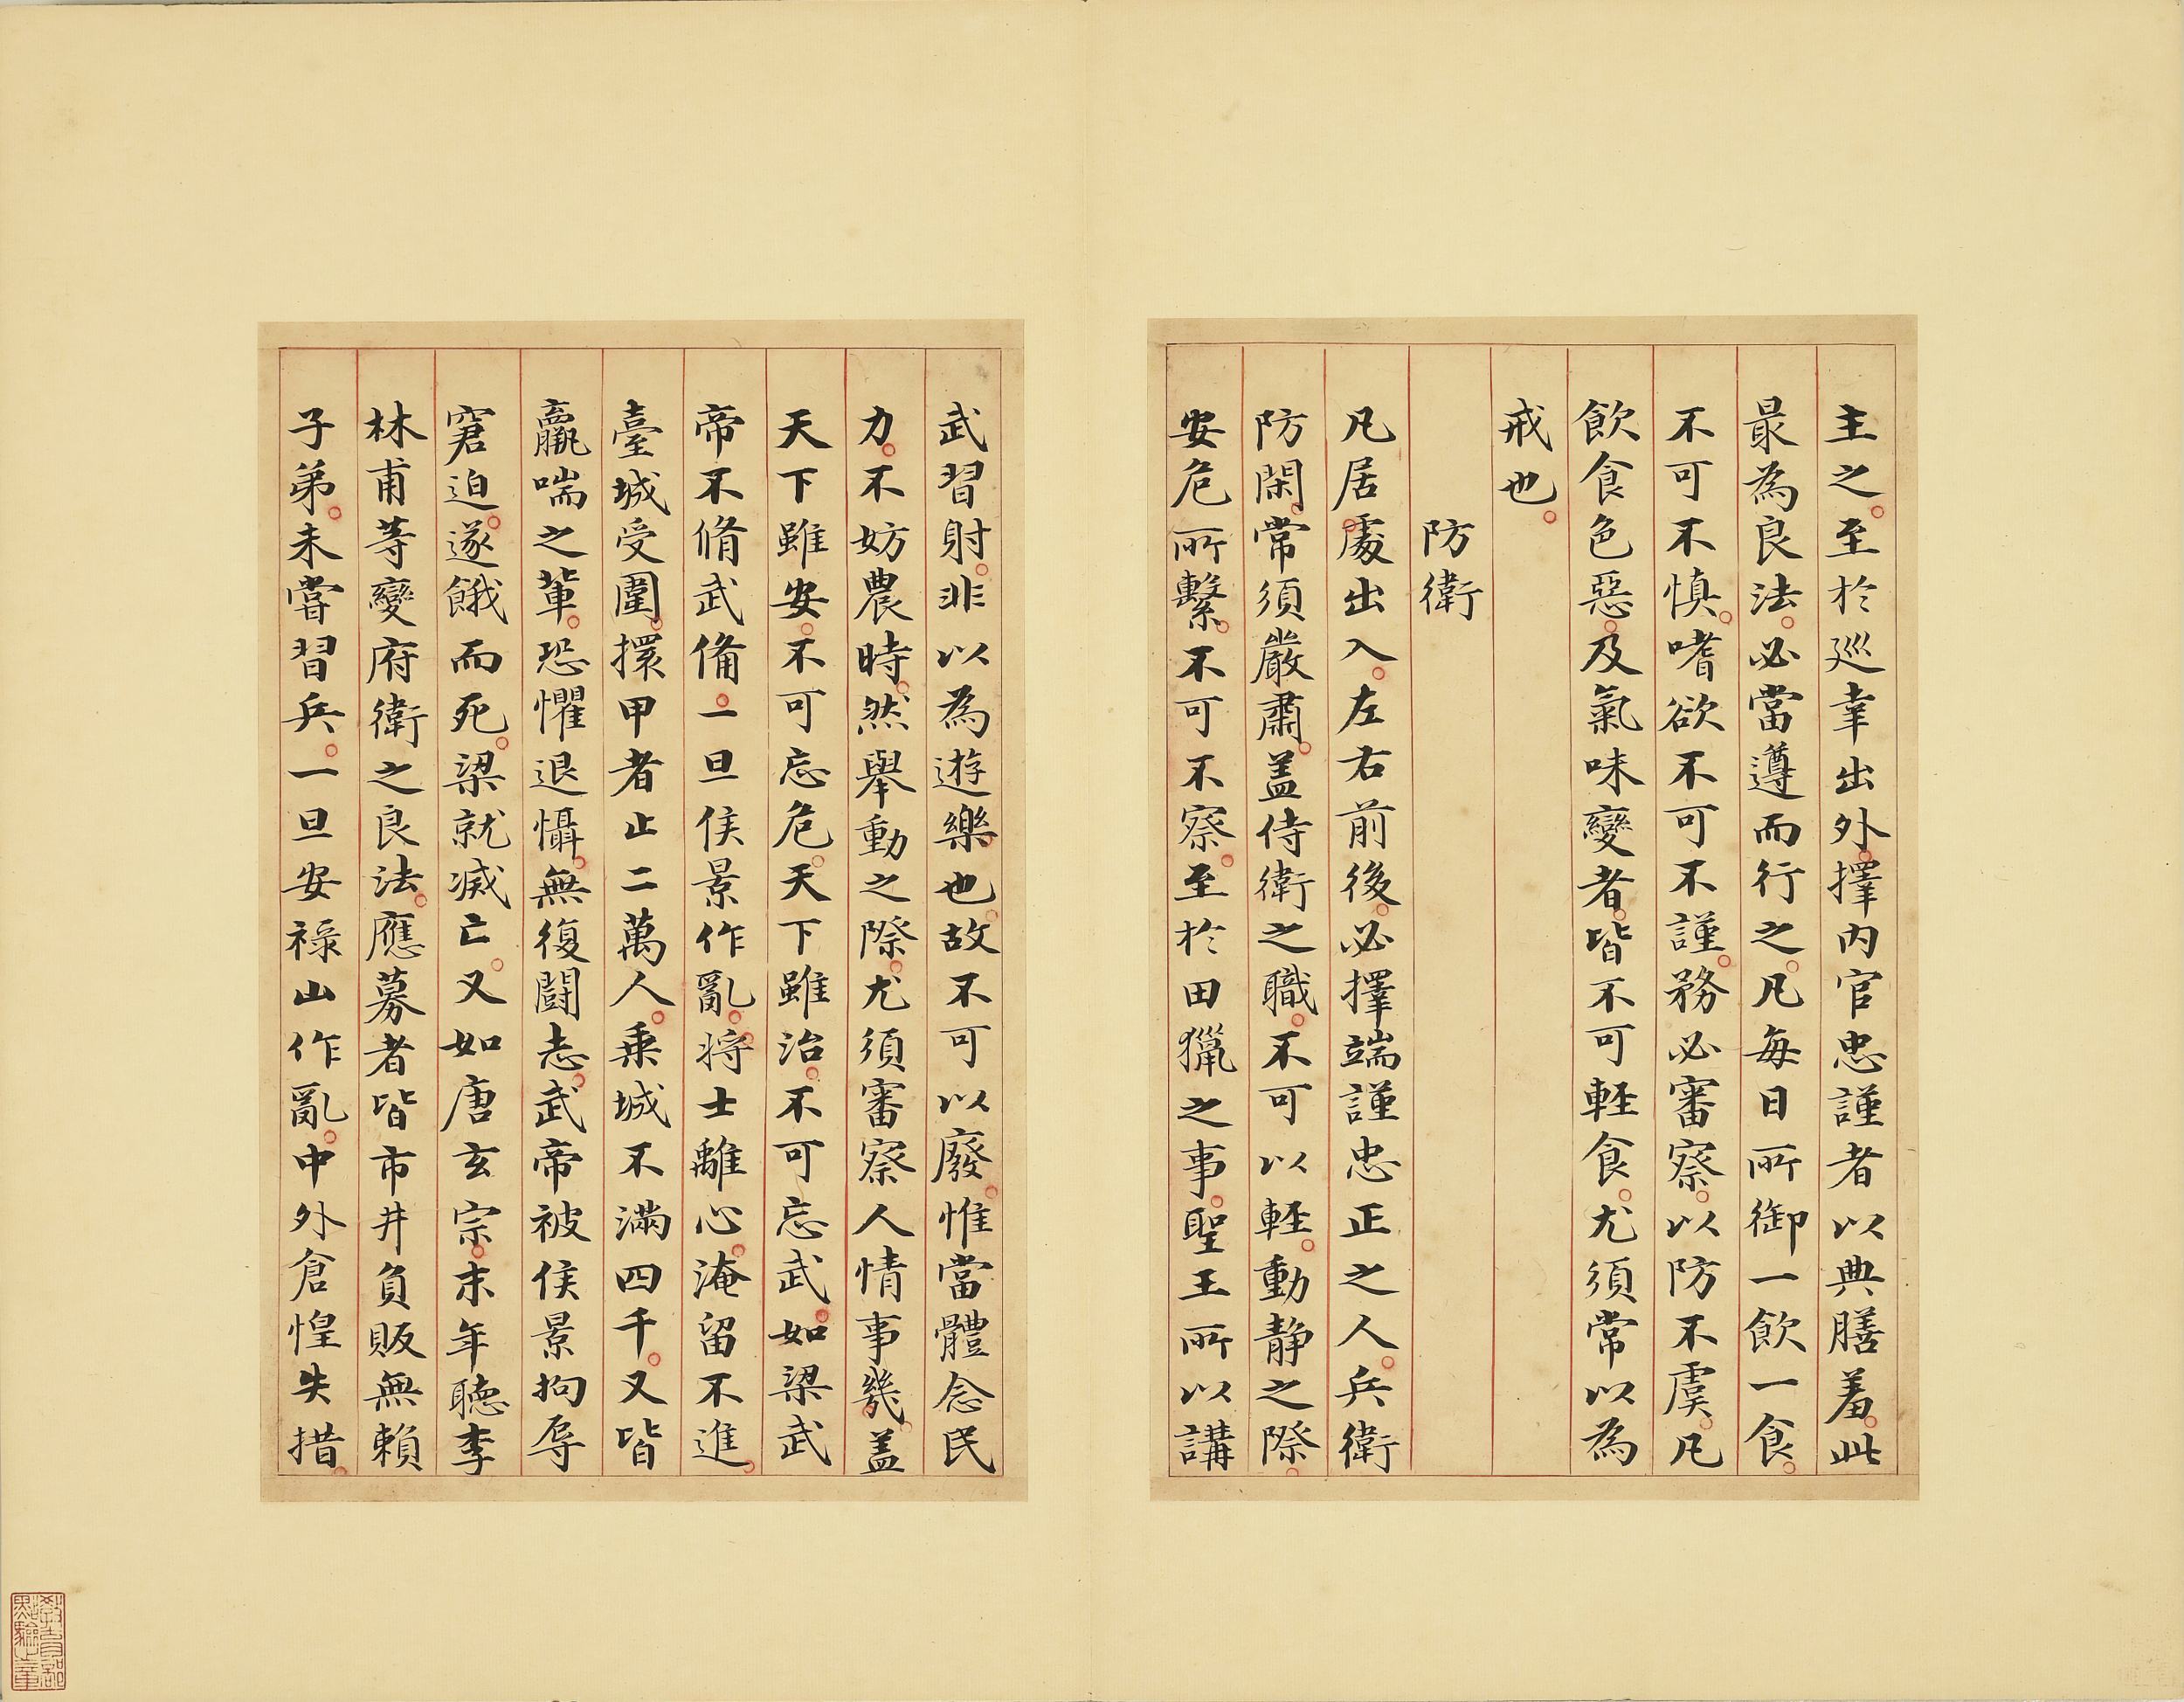 主之至於巡幸出外擇内官忠謹者以典膳羞此
最為良法必當遵而行之凡每日所御一飲一食
不可不慎嗜欲不可不謹務必審察以防不虞凡
飲食色惡及氣味變者皆不可軽食尤須常以為
戒也
防衛
凡居處出入左右前後必擇端謹忠正之人兵衛
防閑常須嚴肅盖侍衛之職不可以軽動静之際
安危所繫不可不察至於田獵之事聖王所以講
武習射非以為遊樂也故不可以廢惟當體念民
力不妨農時然舉動之際尤須審察人情事幾盖
天下雖安不可忘危天下雖治不可忘武如梁武
帝不脩武備一旦侯景作亂將士離心淹留不進
臺城受圍擐甲者止二萬人乗城不滿四千又皆
羸喘之輩恐懼退懾無復闘志武帝被侯景拘辱
窘迫遂餓而死梁就滅亡又如唐玄宗末年聽李
林甫等變府衛之良法應募者皆市井負販無賴
子弟未嘗習兵一旦安祿山作亂中外倉惶失措
教育部
點驗之章